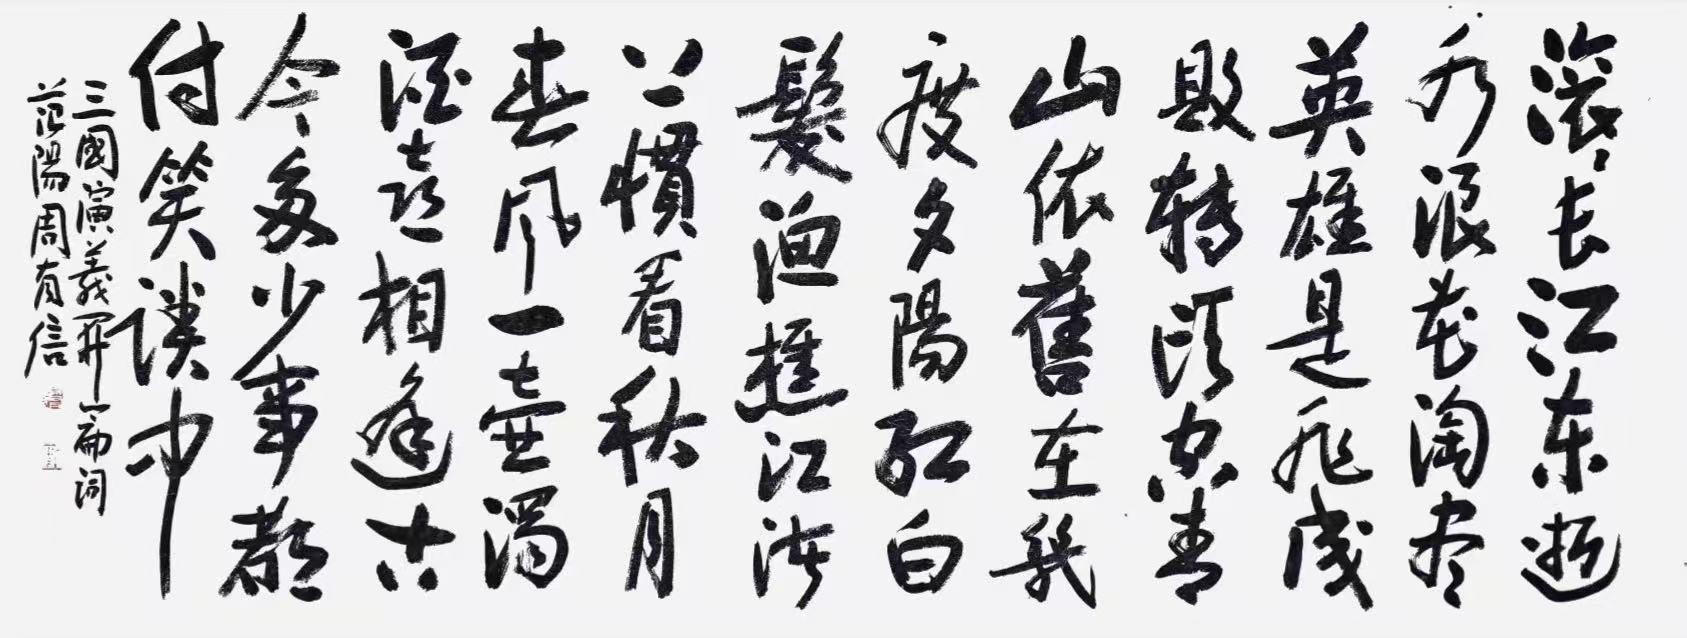 滚滚长江东逝
水浪花淘尽
英雄是非成
败转头空青
山依舊在几
度夕陽红白
髮渔樵江渚
上惯看秋月
春风一壶濁
酒喜相逢古
今多少事都
付笑谈中
三國演義開篇词
范陽周有信